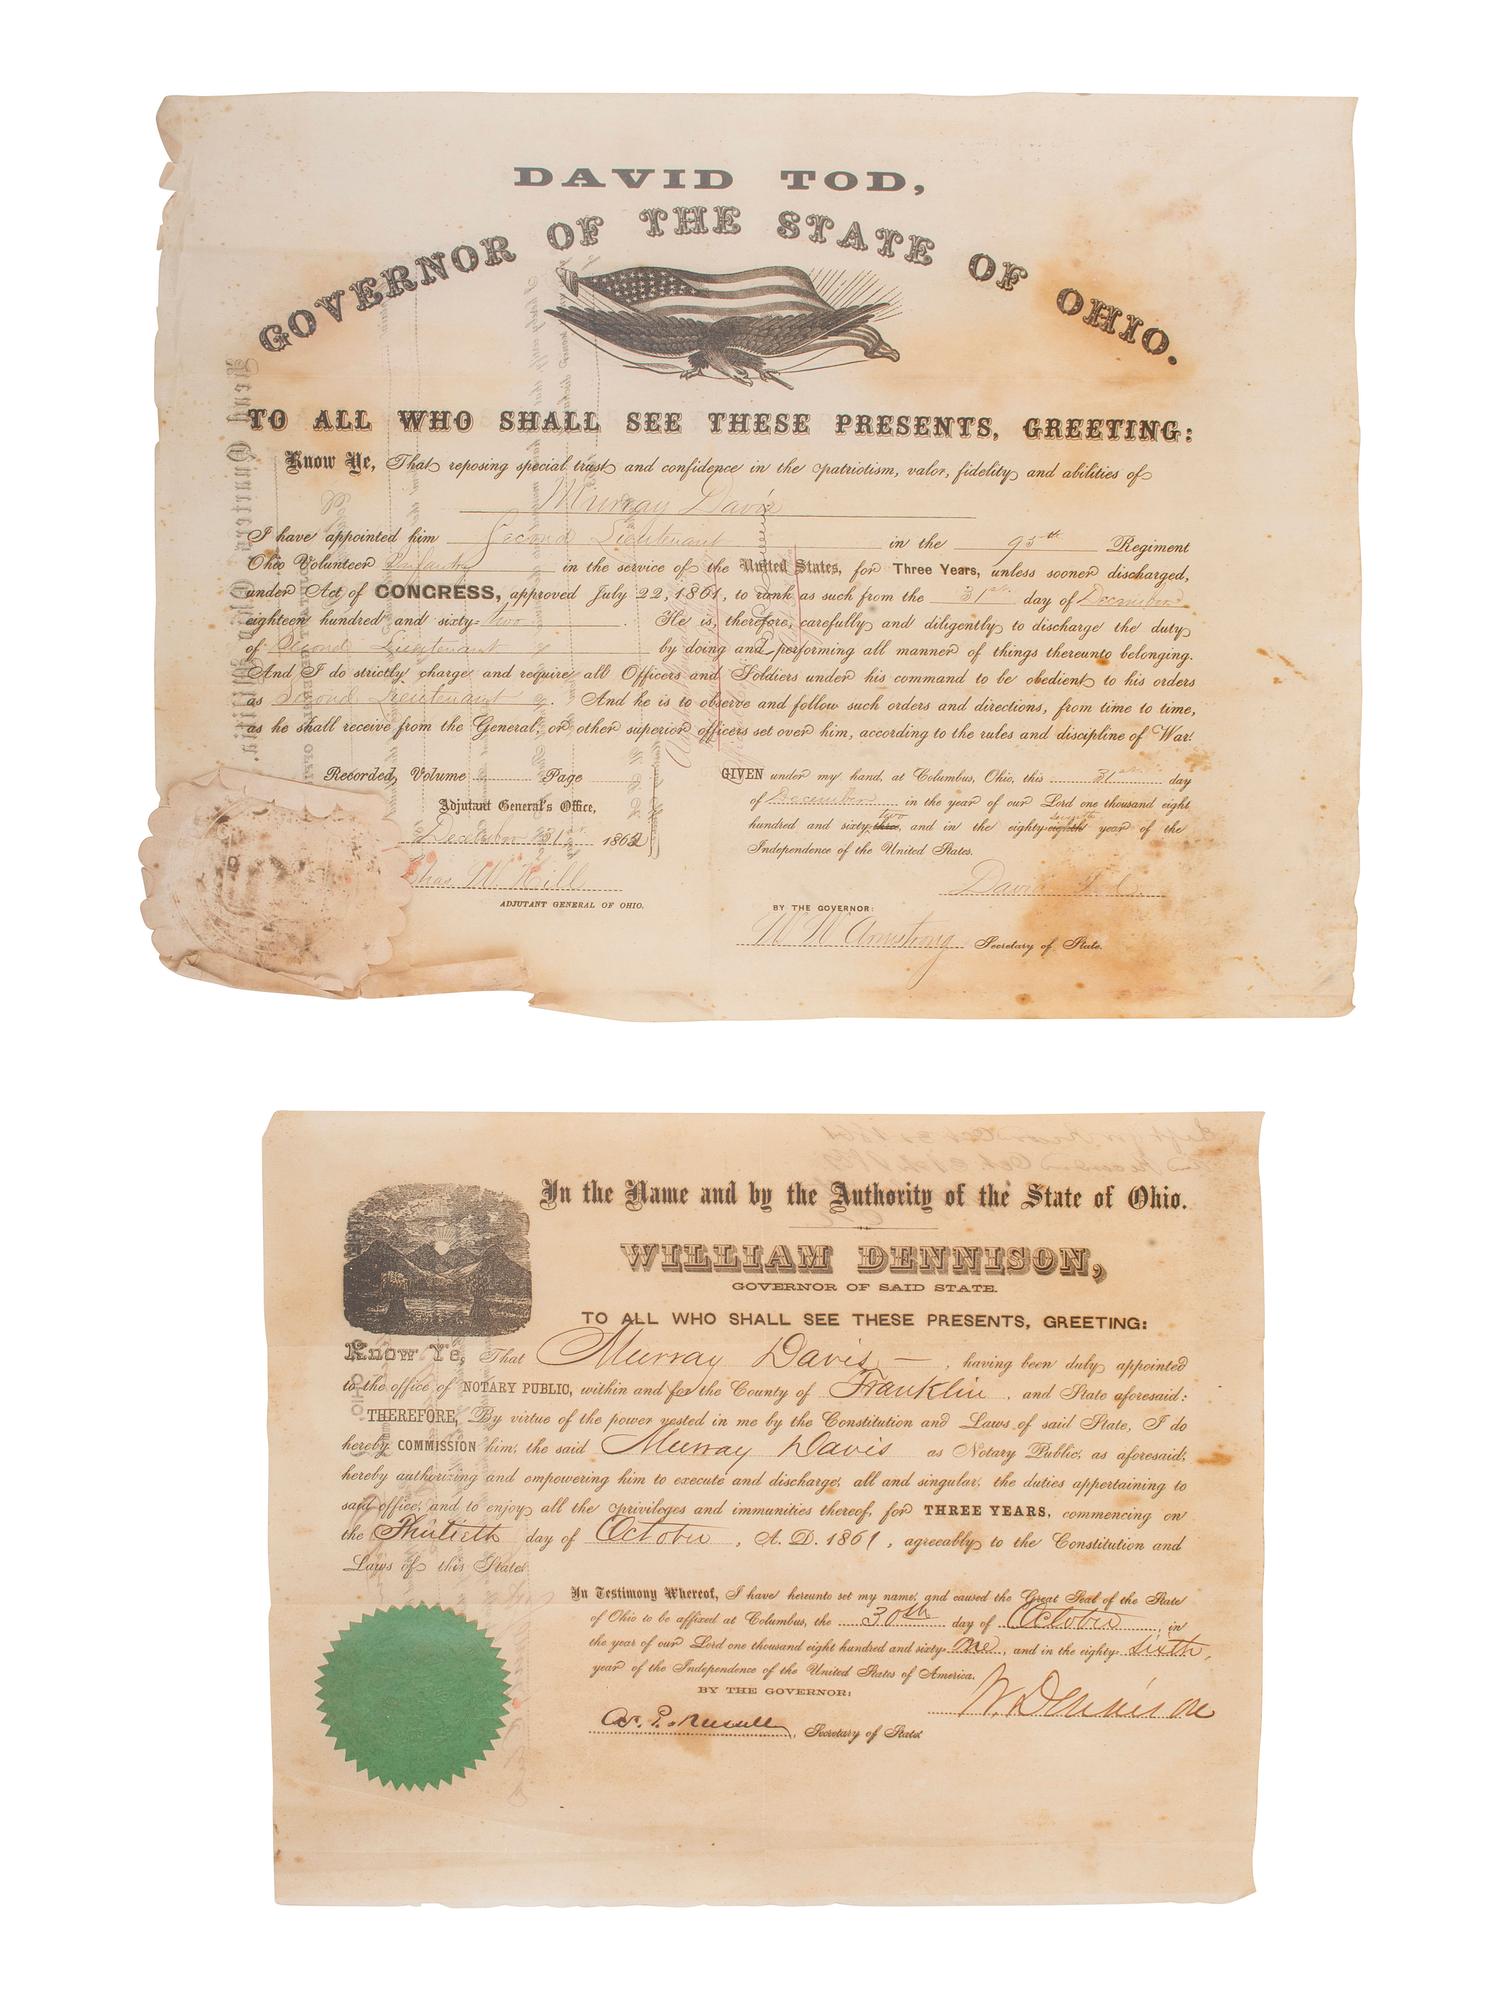 DAVID TOD,
GOVERNOR OF THE STATE OF OHIO.
TO ALL WHO SHALL SEE THESE PRESENTS, GREETING:
Know Ye, That reposing special trust and confidence in the patriotism, valor, fidelity and abilities of
Murray Davis
I have appointed him Second Lieutenant in the 95th Regiment
Ohio Volunteer Infantry in the service of the United States, for Three Years, unless sooner discharged,
under Act of CONGRESS, approved July 22, 1861, to rank as such from the 31st day of December
eighteen hundred and sixty-two. He is, therefore, carefully and diligently to discharge the duty
of Second Lieutenant by doing and performing all manner of things thereunto belonging.
And I do strictly charge and require all Officers and Soldiers under his command to be obedient to his orders
as Second Lieutenant. And he is to observe and follow such orders and directions, from time to time,
as he shall receive from the General, or other superior officers set over him, according to the rules and discipline of War.
Recorded, Volume Page
Adjutant General's Office,
December 31st 1862
Chas. W. Hill
ADJUTANT GENERAL OF OHIO.
GIVEN under my hand, at Columbus, Ohio, this 31st day
of December in the year of our Lord one thousand eight
hundred and sixty-three, two and in the eighty-eighth seventh year of the
Independence of the United States.
David Tod
BY THE GOVERNOR:
W W Armstrong Secretary of State.
In the Name and by the Authority of the State of Ohio.
WILLIAM DENNISON,
GOVERNOR OF SAID STATE.
TO ALL WHO SHALL SEE THESE PRESENTS, GREETING:
Know Ye, That Murray Davis —, having been duly appointed
to the office of NOTARY PUBLIC, within and for the County of Franklin, and State aforesaid:
THEREFORE, By virtue of the power vested in me by the Constitution and Laws of said State, I do
hereby COMMISSION him, the said Murray Davis as Notary Public, as aforesaid;
hereby authorizing and empowering him to execute and discharge, all and singular, the duties appertaining to
said office, and to enjoy all the privileges and immunities thereof, for THREE YEARS, commencing on
the Thirtieth day of October, A. D. 1861, agreeably to the Constitution and
Laws of this State.
In Testimony Whereof, I have hereunto set my name, and caused the Great Seal of the State
of Ohio to be affixed at Columbus, the 30th day of October, in
the year of our Lord one thousand eight hundred and sixty-One, and in the eighty-sixth,
year of the Independence of the United States of America.
BY THE GOVERNOR:
W. Dennison
A. P. Russell, Secretary of State